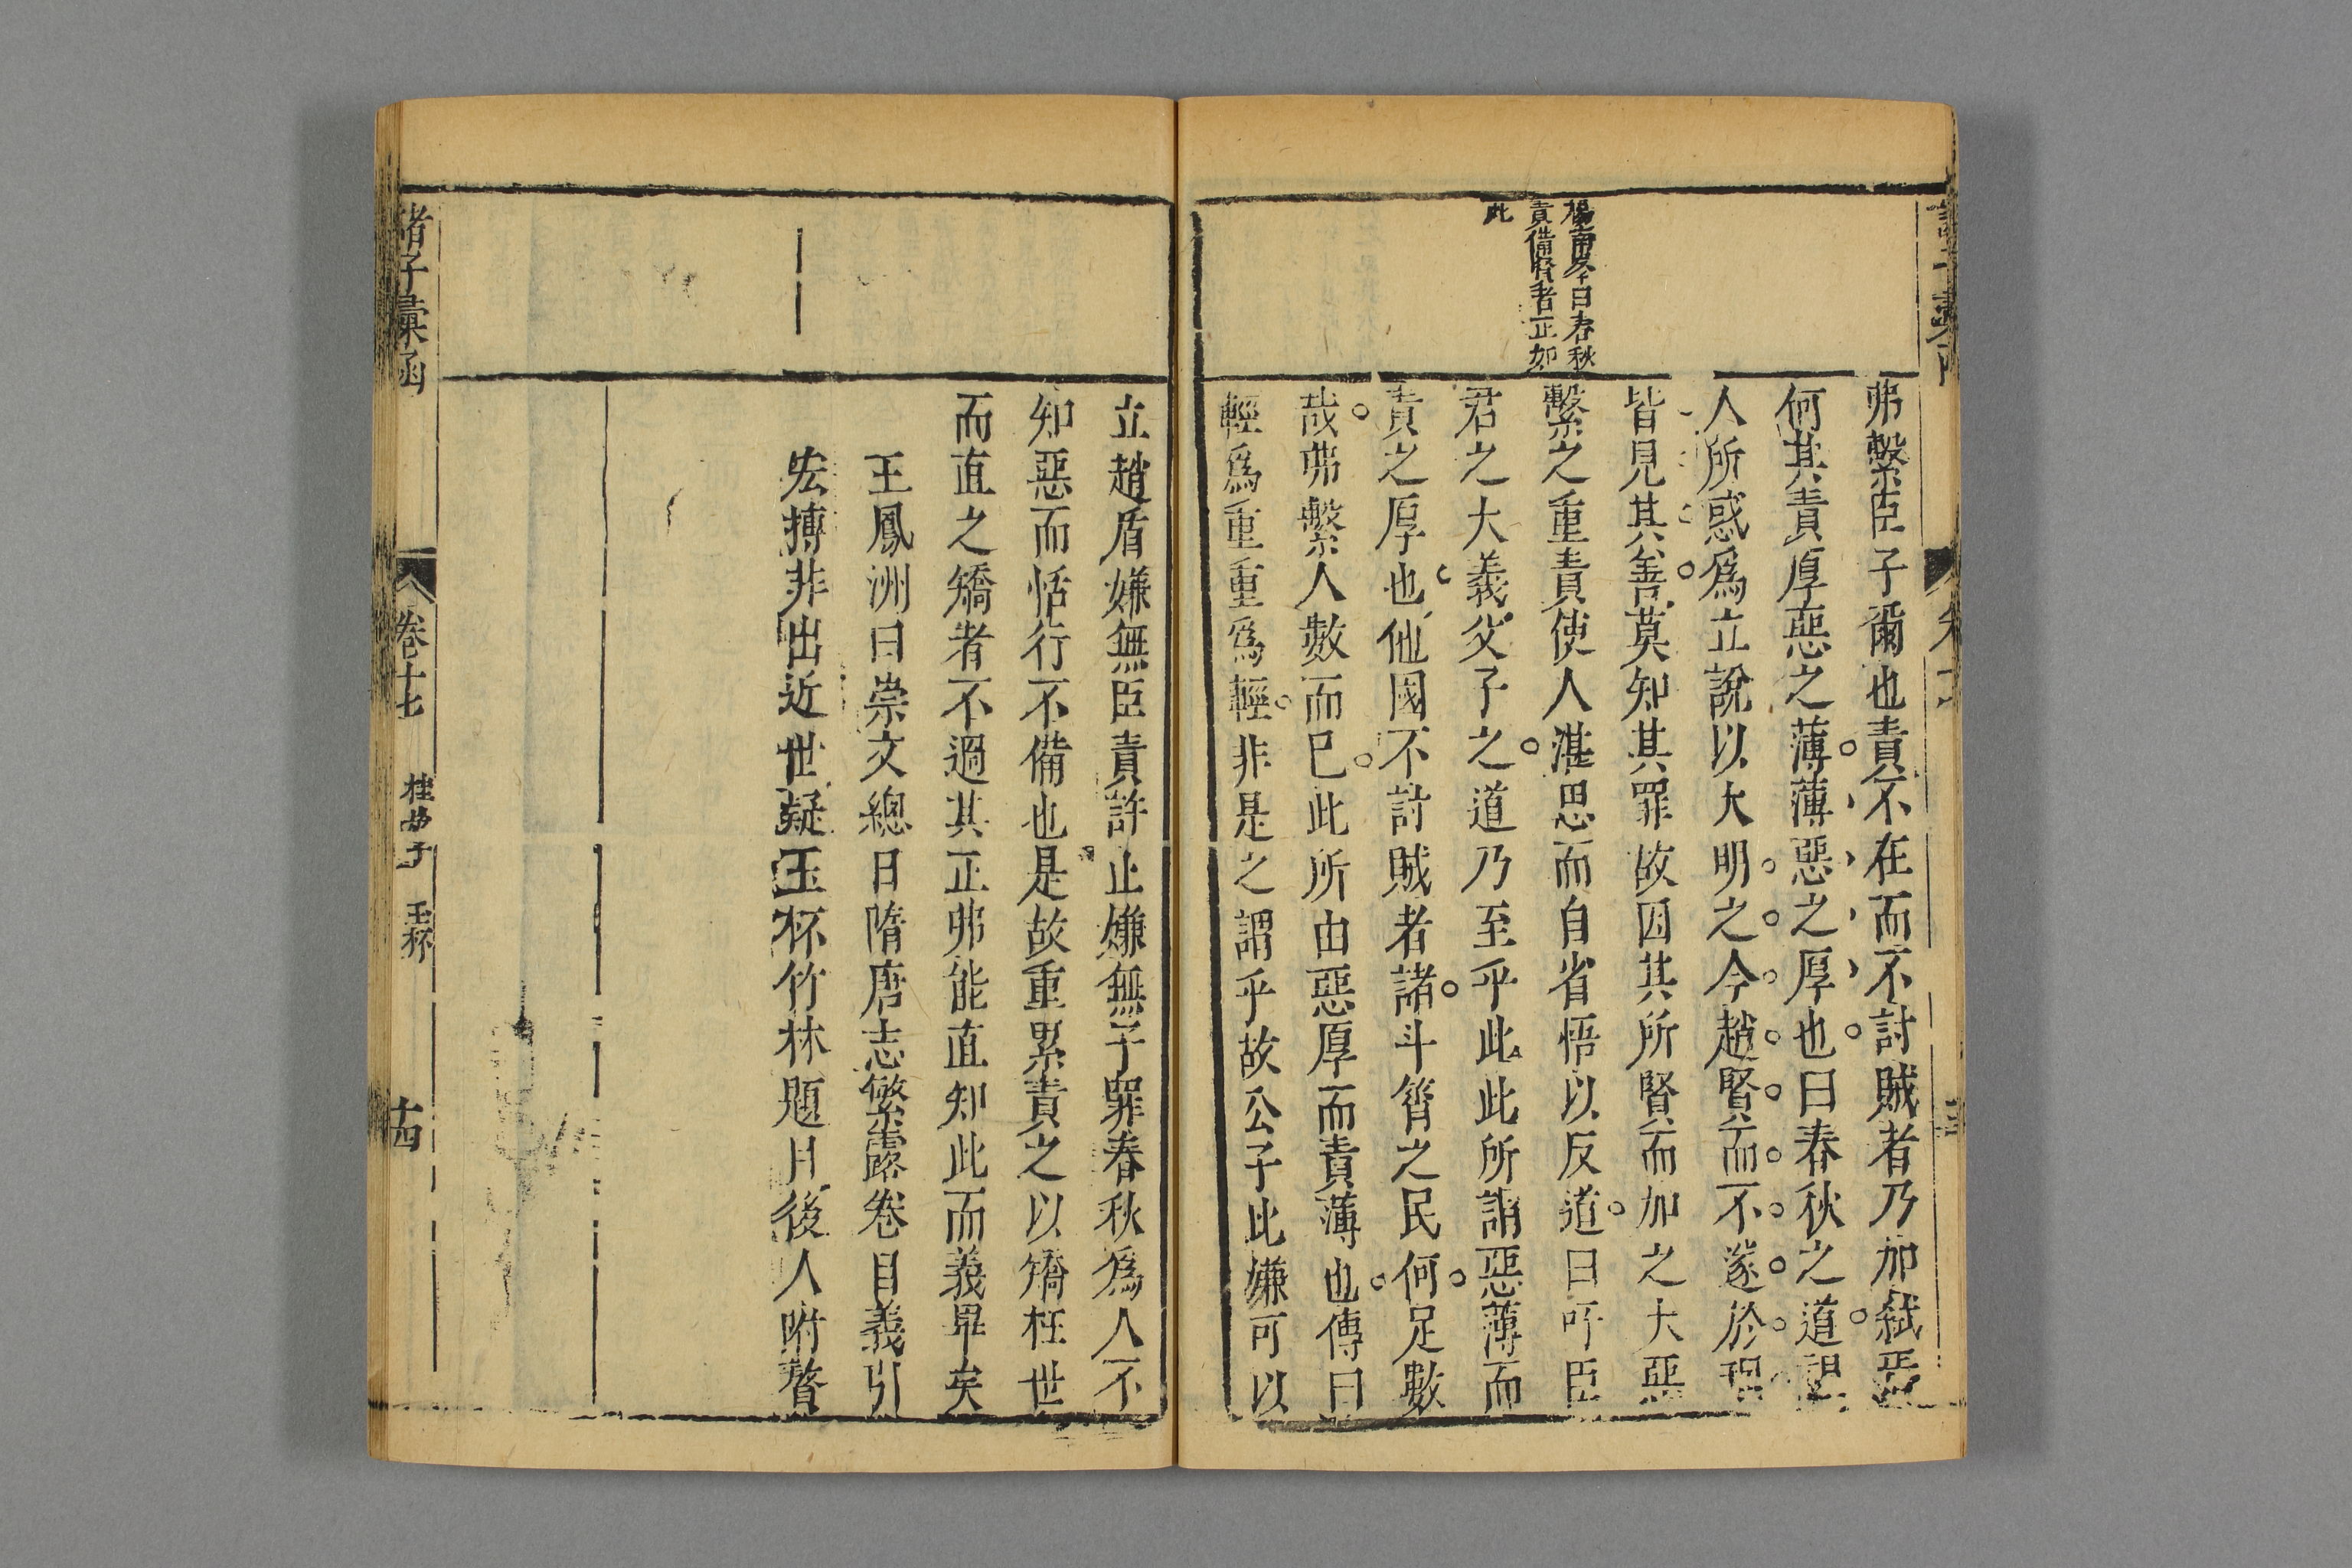 弗繫臣子爾也責不在而不討賊者乃加弑
何其責厚惡之薄薄惡之厚也曰春秋之道視
人所惑爲立說以大明之今趙賢而不遂於理
皆見其善莫知其罪故因其所賢而加之大惡
繫之重責使人湛思而自省悟以反道曰吁臣
君之大義父子之道乃至乎此此所謂惡薄而
責之厚也他國不討賊者諸斗筲之民何足數
哉弗繫人數而已此所由惡厚而責薄也傳曰
輕爲重重爲輕非是之謂乎故公子比嫌可以
曰春秋
責備賢者正如
此
立趙盾嫌無臣責許止嫌無子罪春秋爲人不
知惡而恬行不備也是故重累責之以矯枉世
而直之矯者不過其正弗能直知此而義畢矣
王鳳洲曰崇文總日隋唐志繁露卷目義引
宏搏非出近世疑玉杯竹林題月後人附贅
諸子彙函
卷十七
桂巖子
玉杯
十四